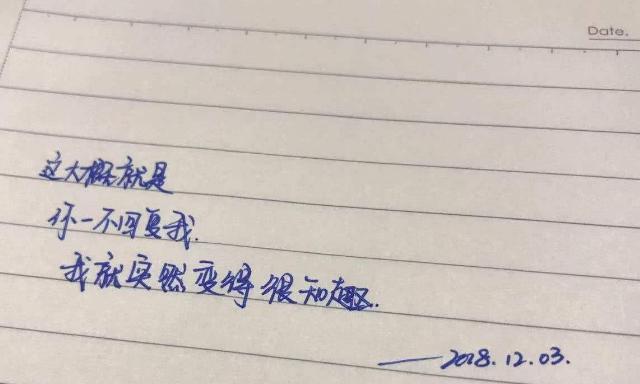 Date.
这大概就是
你一不回复我.
我就突然变得很知趣.
——2018.12.03.